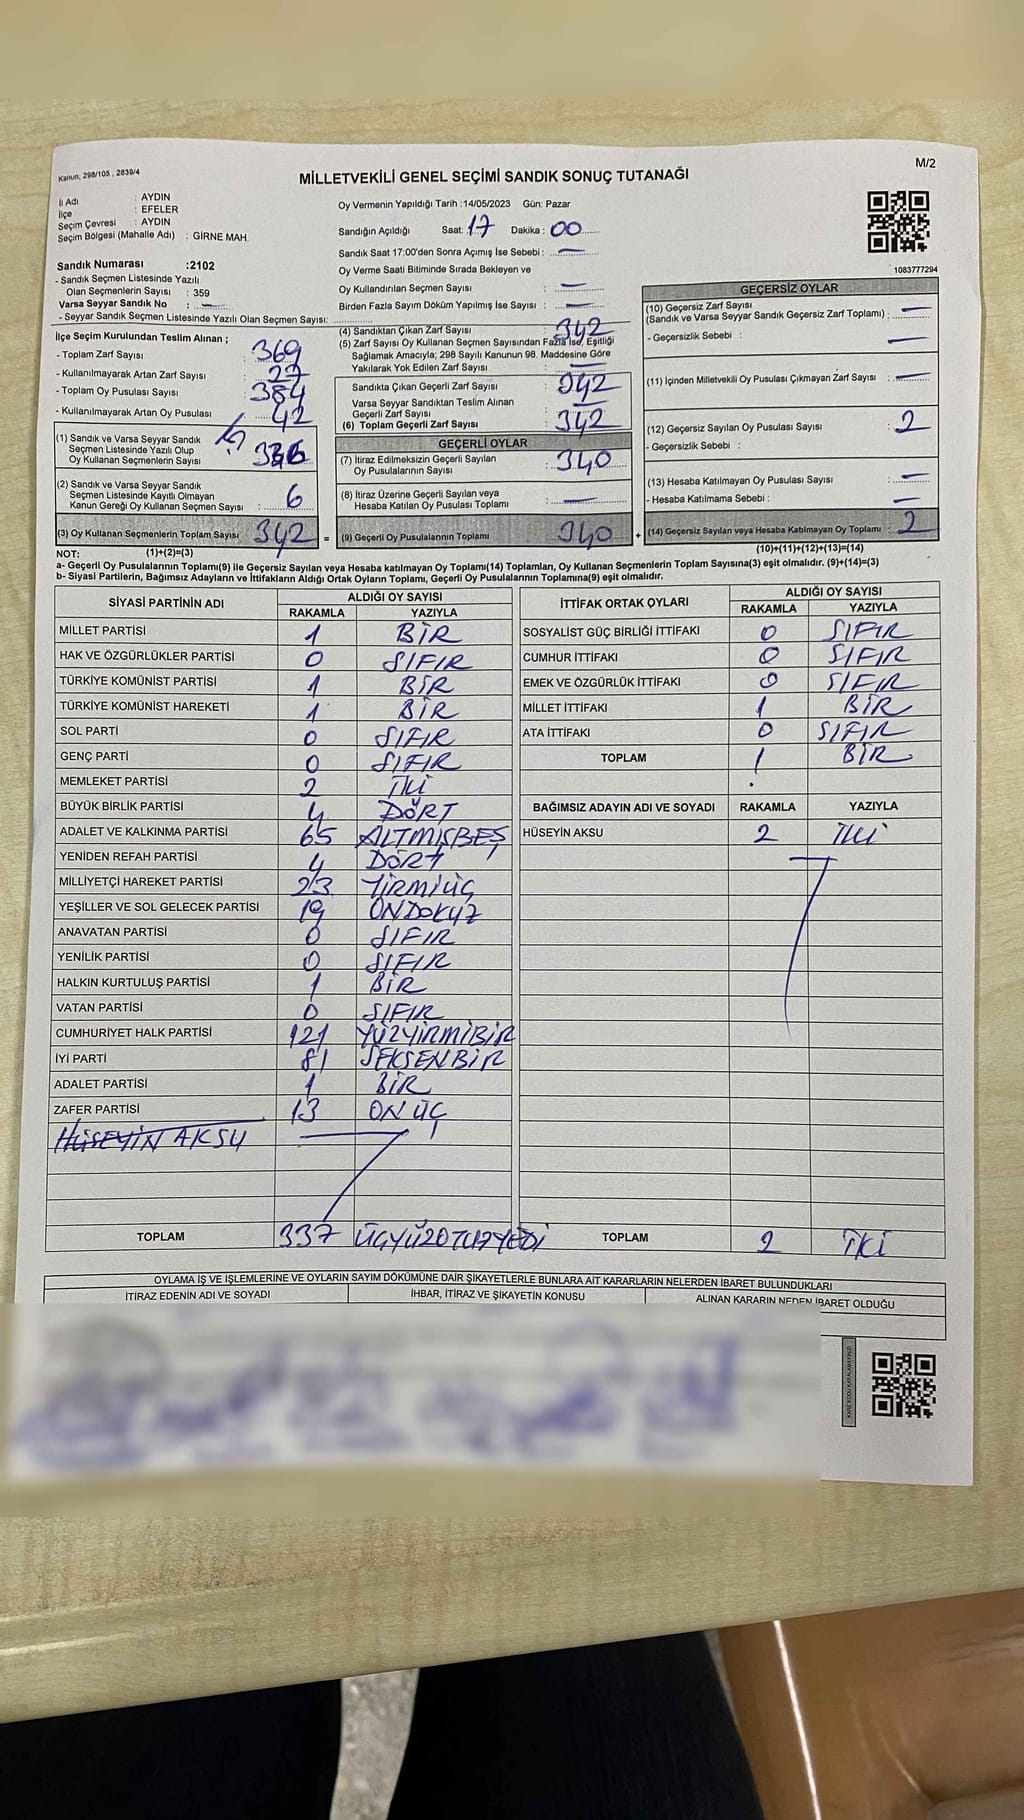 M/2
Kanun: 298/105 , 2839/4
MİLLETVEKİLİ GENEL SEÇİMİ SANDIK SONUÇ TUTANAĞI
İl Adı : AYDIN
İlçe : EFELER
Seçim Çevresi : AYDIN
Seçim Bölgesi (Mahalle Adı) : GİRNE MAH.
Sandık Numarası :2102
- Sandık Seçmen Listesinde Yazılı
Olan Seçmenlerin Sayısı : 359
Varsa Seyyar Sandık No : —
- Seyyar Sandık Seçmen Listesinde Yazılı Olan Seçmen Sayısı:
Oy Vermenin Yapıldığı Tarih :14/05/2023 Gün: Pazar
Sandığın Açıldığı Saat: 17 Dakika : 00
Sandık Saat 17:00'den Sonra Açımış İse Sebebi : —
Oy Verme Saati Bitiminde Sırada Bekleyen ve
Oy Kullandırılan Seçmen Sayısı : —
Birden Fazla Sayım Döküm Yapılmış İse Sayısı : —
1083777294
İlçe Seçim Kurulundan Teslim Alınan ;
- Toplam Zarf Sayısı : 369
- Kullanılmayarak Artan Zarf Sayısı : 27
- Toplam Oy Pusulası Sayısı : 384
- Kullanılmayarak Artan Oy Pusulası : 42
(1) Sandık ve Varsa Seyyar Sandık
Seçmen Listesinde Yazılı Olup
Oy Kullanan Seçmenlerin Sayısı 336
(2) Sandık ve Varsa Seyyar Sandık
Seçmen Listesinde Kayıtlı Olmayan
Kanun Gereği Oy Kullanan Seçmen Sayısı : 6
(3) Oy Kullanan Seçmenlerin Toplam Sayısı 342 =
(1)+(2)=(3)
(4) Sandıktan Çıkan Zarf Sayısı : 342
(5) Zarf Sayısı Oy Kullanan Seçmen Sayısından Fazla İse, Eşitliği
Sağlamak Amacıyla; 298 Sayılı Kanunun 98. Maddesine Göre
Yakılarak Yok Edilen Zarf Sayısı : —
Sandıkta Çıkan Geçerli Zarf Sayısı : 342
Varsa Seyyar Sandıktan Teslim Alınan
Geçerli Zarf Sayısı : —
(6) Toplam Geçerli Zarf Sayısı : 342
GEÇERLİ OYLAR
(7) İtiraz Edilmeksizin Geçerli Sayılan
Oy Pusulalarının Sayısı : 340
(8) İtiraz Üzerine Geçerli Sayılan veya
Hesaba Katılan Oy Pusulası Toplamı : —
(9) Geçerli Oy Pusulalarının Toplamı 340 +
GEÇERSİZ OYLAR
(10) Geçersiz Zarf Sayısı
(Sandık ve Varsa Seyyar Sandık Geçersiz Zarf Toplamı) : —
- Geçersizlik Sebebi : —
(11) İçinden Milletvekili Oy Pusulası Çıkmayan Zarf Sayısı : —
(12) Geçersiz Sayılan Oy Pusulası Sayısı : 2
- Geçersizlik Sebebi :
(13) Hesaba Katılmayan Oy Pusulası Sayısı : —
- Hesaba Katılmama Sebebi : —
(14) Geçersiz Sayılan veya Hesaba Katılmayan Oy Toplamı : 2
(10)+(11)+(12)+(13)=(14)
NOT:
a- Geçerli Oy Pusulalarının Toplamı(9) ile Geçersiz Sayılan veya Hesaba katılmayan Oy Toplamı(14) Toplamları, Oy Kullanan Seçmenlerin Toplam Sayısına(3) eşit olmalıdır. (9)+(14)=(3)
b- Siyasi Partilerin, Bağımsız Adayların ve İttifakların Aldığı Ortak Oyların Toplamı, Geçerli Oy Pusulalarının Toplamına(9) eşit olmalıdır.
SİYASİ PARTİNİN ADI ALDIĞI OY SAYISI
RAKAMLA YAZIYLA
MİLLET PARTİSİ 1 BİR
HAK VE ÖZGÜRLÜKLER PARTİSİ 0 SIFIR
TÜRKİYE KOMÜNİST PARTİSİ 1 BİR
TÜRKİYE KOMÜNİST HAREKETİ 1 BİR
SOL PARTİ 0 SIFIR
GENÇ PARTİ 0 SIFIR
MEMLEKET PARTİSİ 2 İKİ
BÜYÜK BİRLİK PARTİSİ 4 DÖRT
ADALET VE KALKINMA PARTİSİ 65 ALTMIŞBEŞ
YENİDEN REFAH PARTİSİ 4 DÖRT
MİLLİYETÇİ HAREKET PARTİSİ 23 YİRMİÜÇ
YEŞİLLER VE SOL GELECEK PARTİSİ 19 ONDOKUZ
ANAVATAN PARTİSİ 0 SIFIR
YENİLİK PARTİSİ 0 SIFIR
HALKIN KURTULUŞ PARTİSİ 1 BİR
VATAN PARTİSİ 0 SIFIR
CUMHURİYET HALK PARTİSİ 121 YÜZYİRMİBİR
İYİ PARTİ 81 SEKSENBİR
ADALET PARTİSİ 1 BİR
ZAFER PARTİSİ 13 ONÜÇ
HÜSEYİN AKSU
TOPLAM 337 ÜÇYÜZOTUZYEDİ
İTTİFAK ORTAK OYLARI ALDIĞI OY SAYISI
RAKAMLA YAZIYLA
SOSYALİST GÜÇ BİRLİĞİ İTTİFAKI 0 SIFIR
CUMHUR İTTİFAKI 0 SIFIR
EMEK VE ÖZGÜRLÜK İTTİFAKI 0 SIFIR
MİLLET İTTİFAKI 1 BİR
ATA İTTİFAKI 0 SIFIR
TOPLAM 1 BİR
BAĞIMSIZ ADAYIN ADI VE SOYADI RAKAMLA YAZIYLA
HÜSEYİN AKSU 2 İKİ
TOPLAM 2 İKİ
OYLAMA İŞ VE İŞLEMLERİNE VE OYLARIN SAYIM DÖKÜMÜNE DAİR ŞİKAYETLERLE BUNLARA AİT KARARLARIN NELERDEN İBARET BULUNDUKLARI
İTİRAZ EDENİN ADI VE SOYADI İHBAR, İTİRAZ VE ŞİKAYETİN KONUSU ALINAN KARARIN NEDEN İBARET OLDUĞU